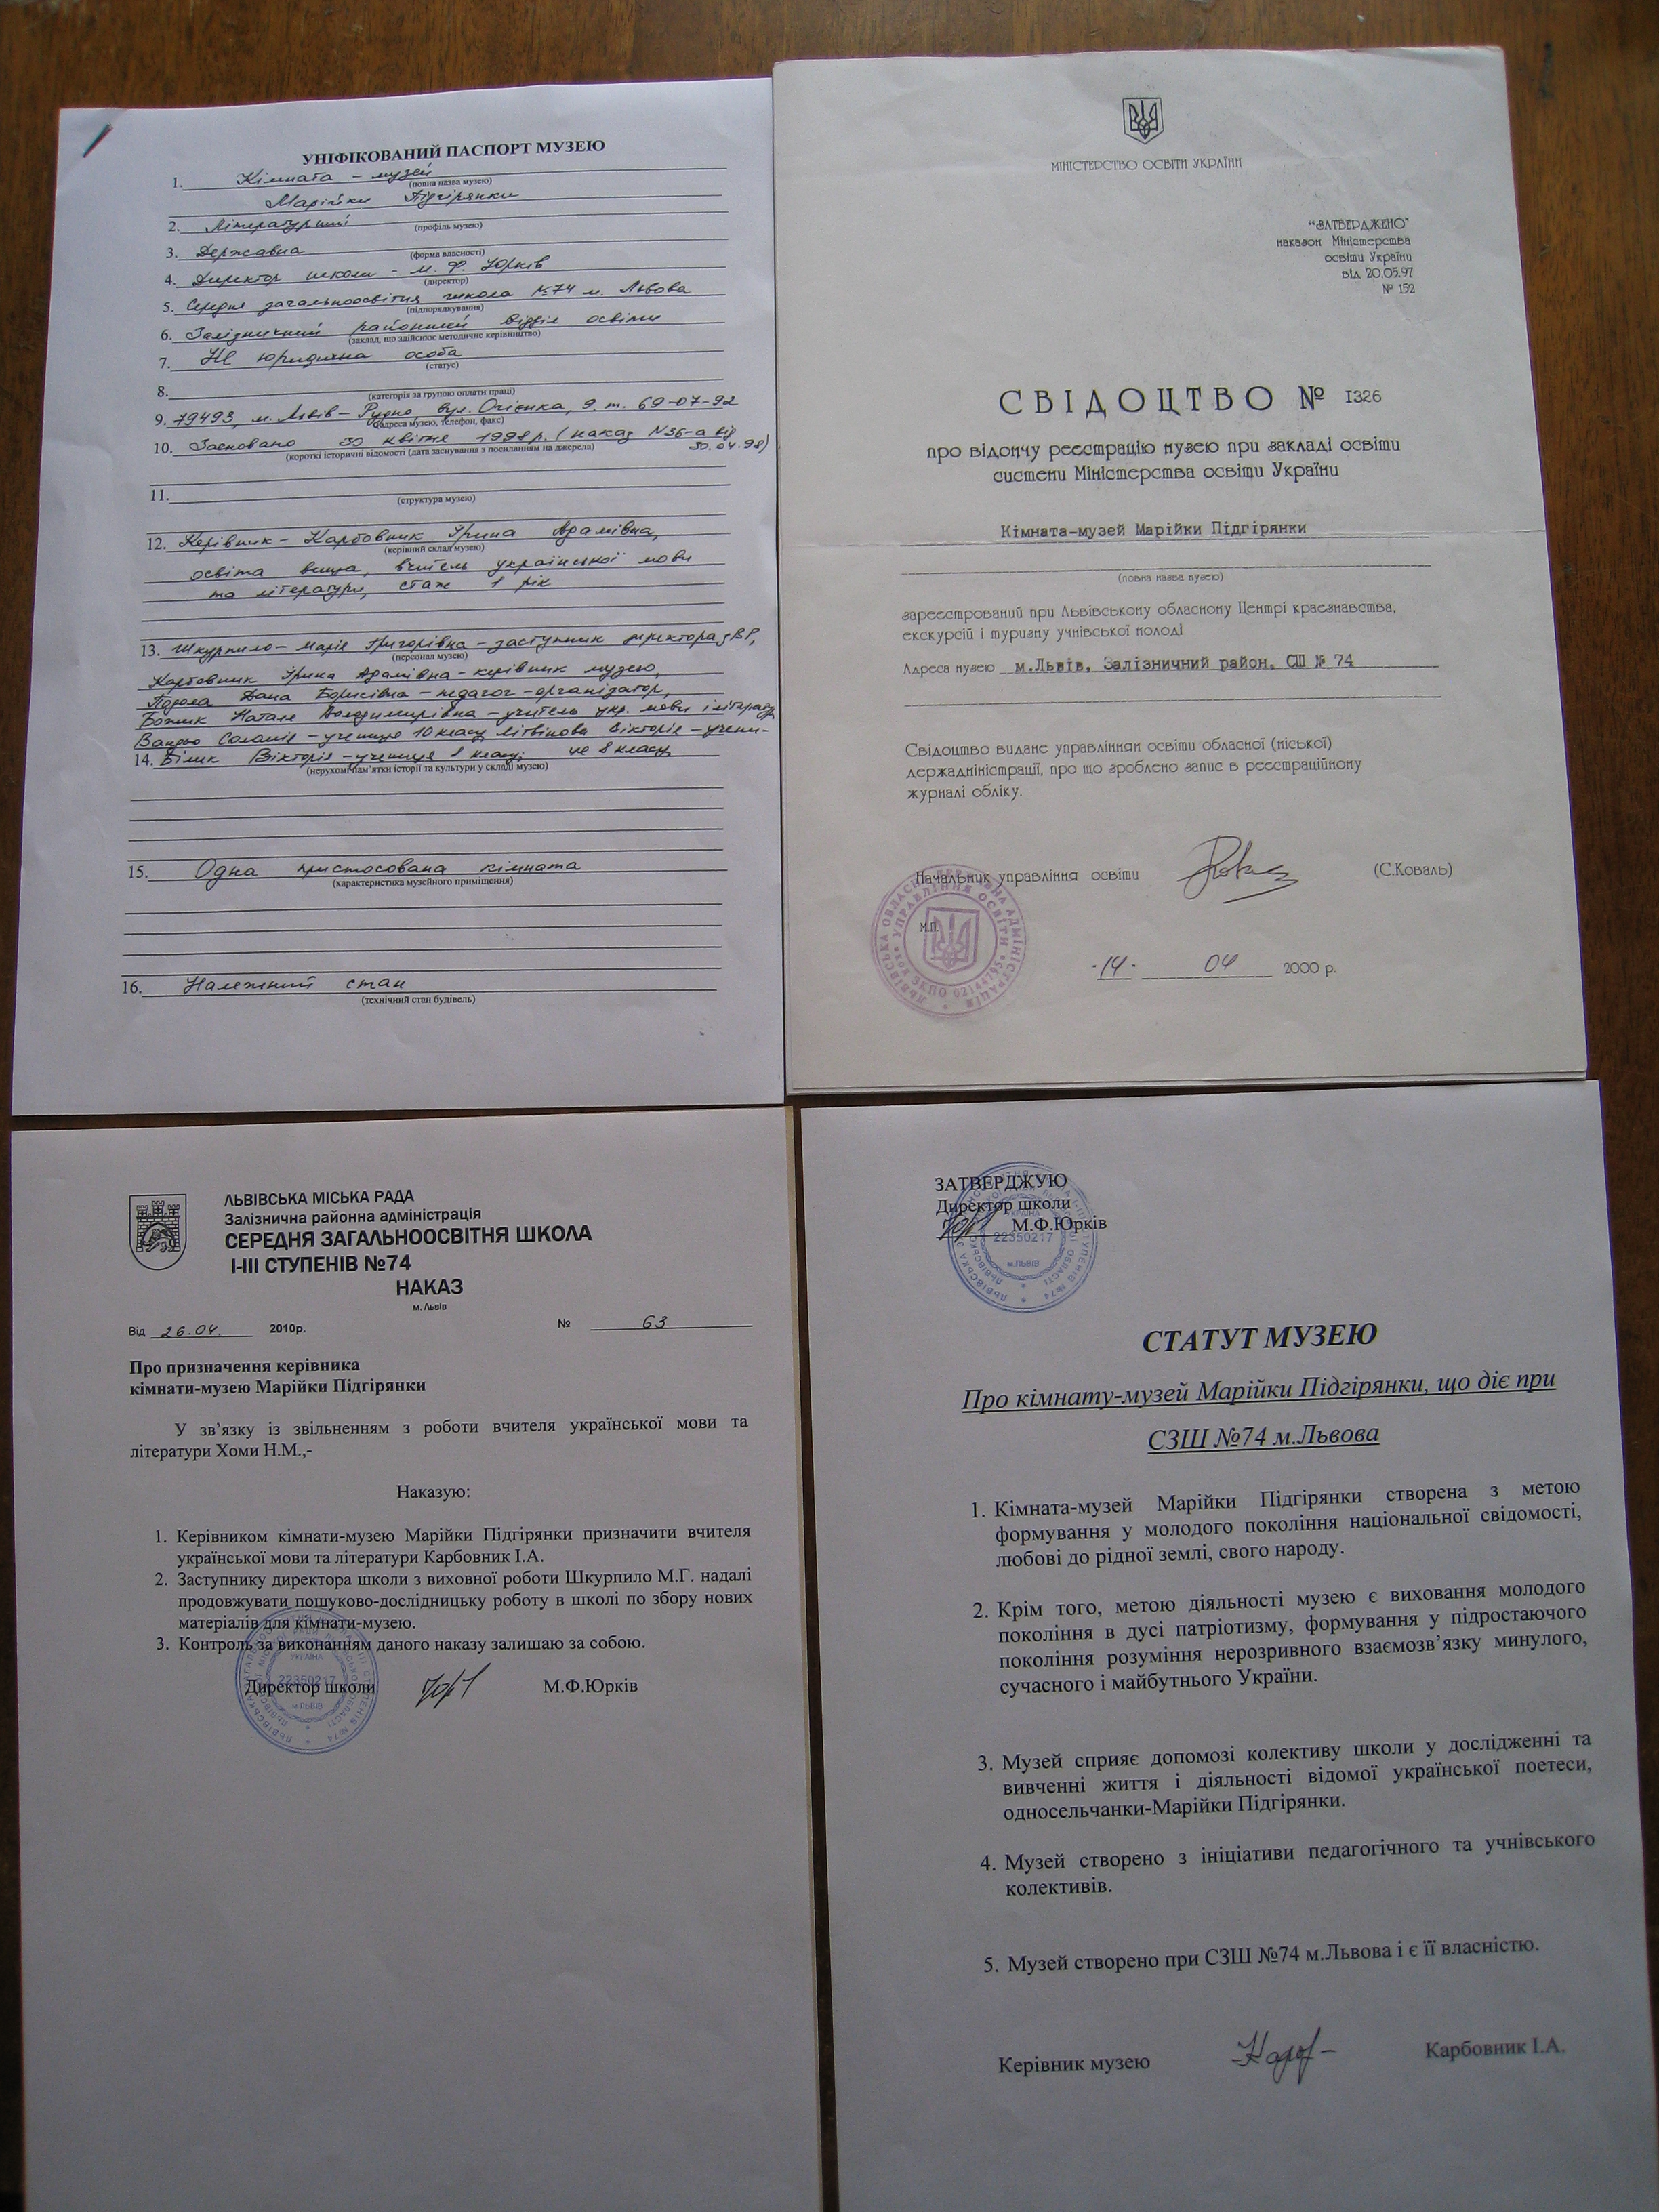 УНІФІКОВАНИЙ ПАСПОРТ МУЗЕЮ
1. Кімната – музей
(повна назва музею)
Марійки Підгірянки
2. Літературний
(профіль музею)
3. Державна
(форма власності)
4. Директор школи – М. Ф. Юрків
(директор)
5. Середня загальноосвітня школа №74 м. Львова
(підпорядкування)
6. Залізничний районний відділ освіти
(заклад, що здійснює методичне керівництво)
7. Не юридична особа
(статус)
8.
(категорія за групою оплати праці)
9. 79493, м. Львів – Рудно, вул. Огієнка, 9, т. 69-07-92
(адреса музею, телефон, факс)
10. Засновано 30 квітня 1998 р. (наказ №36-а від
30.04.98)
(короткі історичні відомості (дата заснування з посиланням на джерела)
11.
(структура музею)
12. Керівник – Карбовник Ірина Адамівна,
(керівний склад музею)
освіта вища, вчитель української мови
та літератури, стаж 1 рік
13. Шкурпило – Марія Григорівна – заступник директора з ВР,
(персонал музею)
Карбовник Ірина Адамівна – керівник музею,
Дана Борисівна – педагог – організатор,
Божик Наталя Володимирівна – учитель укр. мови і літератури
Соломія – учениця 10 класу, Літвінова Вікторія – учени-
14. Білик Вікторія – учениця 8 класу; ця 8 класу
(нерухомі пам'ятки історії та культури у складі музею)
15. Одна пристосована кімната
(характеристика музейного приміщення)
16. Належний стан
(технічний стан будівель)
МІНІСТЕРСТВО ОСВІТИ УКРАЇНИ
“ЗАТВЕРДЖЕНО”
наказом Міністерства
освіти України
від 20.05.97
№ 152
СВІДОЦТВО № 1326
про відомчу реєстрацію музею при закладі освіти
системи Міністерства освіти України
Кімната-музей Марійки Підгірянки
(повна назва музею)
зареєстрований при Львівському обласному Центрі краєзнавства,
екскурсій і туризму учнівської молоді
Адреса музею м.Львів, Залізничний район, СШ № 74
Свідоцтво видане управлінням освіти обласної (міської)
держадміністрації, про що зроблено запис в реєстраційному
журналі обліку.
Начальник управління освіти (С.Коваль)
М.П.
14 04 2000 р.
ЛЬВІВСЬКА ОБЛАСНА ДЕРЖАВНА АДМІНІСТРАЦІЯ
УПРАВЛІННЯ ОСВІТИ
ЛЬВІВСЬКА МІСЬКА РАДА
Залізнична районна адміністрація
СЕРЕДНЯ ЗАГАЛЬНООСВІТНЯ ШКОЛА
І-ІІІ СТУПЕНІВ №74
НАКАЗ
м. Львів
Від 26.04. 2010р. № 63
Про призначення керівника
кімнати-музею Марійки Підгірянки
У зв’язку із звільненням з роботи вчителя української мови та
літератури Хоми Н.М.,-
Наказую:
1. Керівником кімнати-музею Марійки Підгірянки призначити вчителя
української мови та літератури Карбовник І.А.
2. Заступнику директора школи з виховної роботи Шкурпило М.Г. надалі
продовжувати пошуково-дослідницьку роботу в школі по збору нових
матеріалів для кімнати-музею.
3. Контроль за виконанням даного наказу залишаю за собою.
Директор школи М.Ф.Юрків
УКРАЇНА
22350217
м.ЛЬВІВ
ЗАТВЕРДЖУЮ
Директор школи
М.Ф.Юрків
УКРАЇНА
22350217
м.ЛЬВІВ
СТАТУТ МУЗЕЮ
Про кімнату-музей Марійки Підгірянки, що діє при
СЗШ №74 м.Львова
1. Кімната-музей Марійки Підгірянки створена з метою
формування у молодого покоління національної свідомості,
любові до рідної землі, свого народу.
2. Крім того, метою діяльності музею є виховання молодого
покоління в дусі патріотизму, формування у підростаючого
покоління розуміння нерозривного взаємозв’язку минулого,
сучасного і майбутнього України.
3. Музей сприяє допомозі колективу школи у дослідженні та
вивченні життя і діяльності відомої української поетеси,
односельчанки-Марійки Підгірянки.
4. Музей створено з ініціативи педагогічного та учнівського
колективів.
5. Музей створено при СЗШ №74 м.Львова і є її власністю.
Керівник музею Карбовник І.А.